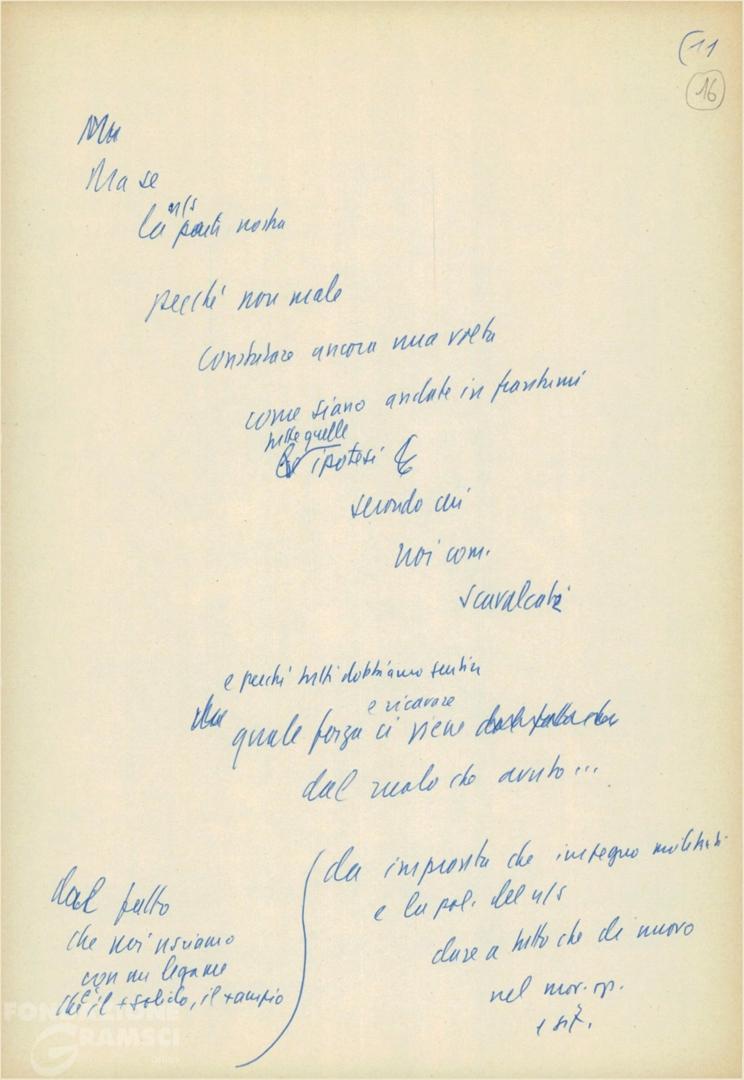 (11
16
Ma
Ma se
n/s
la parte nostra
perché non male
constatare ancora una volta
come siano andate in frantumi
tutte quelle
ipotesi
secondo cui
noi com.
scavalcati
e perché tutti dobbiamo sentire
e ricavare
quale forza ci viene
dal ruolo che avuto...
dal fatto
che noi usciamo
con un legame
che il + solido, il + ampio
da impronta che impegno militanti
e la pol. del n/s
dare a tutto che di nuovo
nel mov. op.
e sit.
FONDAZIONE
GRAMSCI